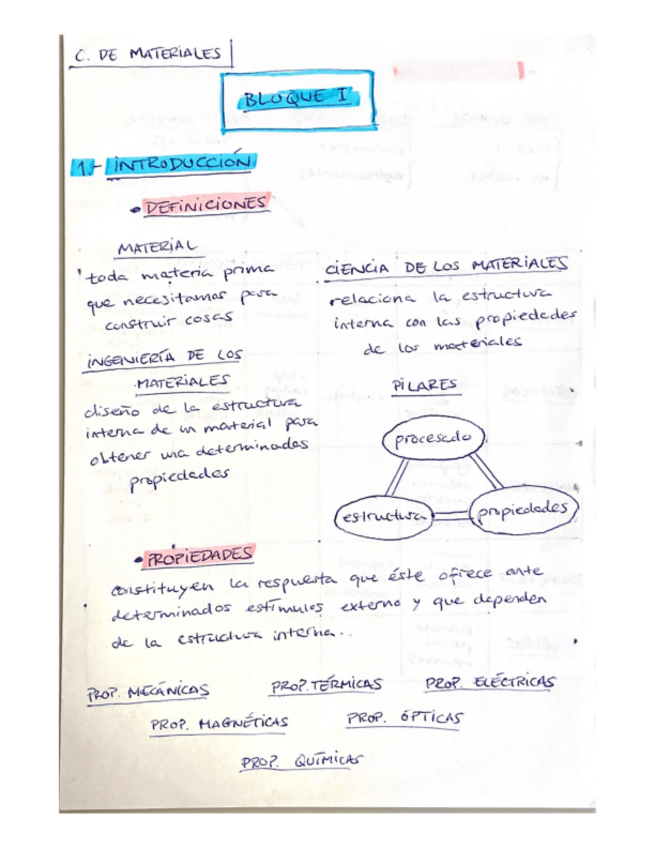 C. DE MATERIALES
BLOQUE I
1.- INTRODUCCIÓN
• DEFINICIONES
MATERIAL
toda materia prima
que necesitamos para
construir cosas
INGENIERÍA DE LOS
MATERIALES
diseño de la estructura
interna de un material para
obtener una determinadas
propiedades
CIENCIA DE LOS MATERIALES
relaciona la estructura
interna con las propiedades
de los materiales
PILARES
procesado
estructura
propiedades
• PROPIEDADES
constituyen la respuesta que éste ofrece ante
determinados estímulos externo y que dependen
de la estructura interna..
PROP. MECÁNICAS
PROP. TÉRMICAS
PROP. ELÉCTRICAS
PROP. MAGNÉTICAS
PROP. ÓPTICAS
PROP. QUÍMICAS